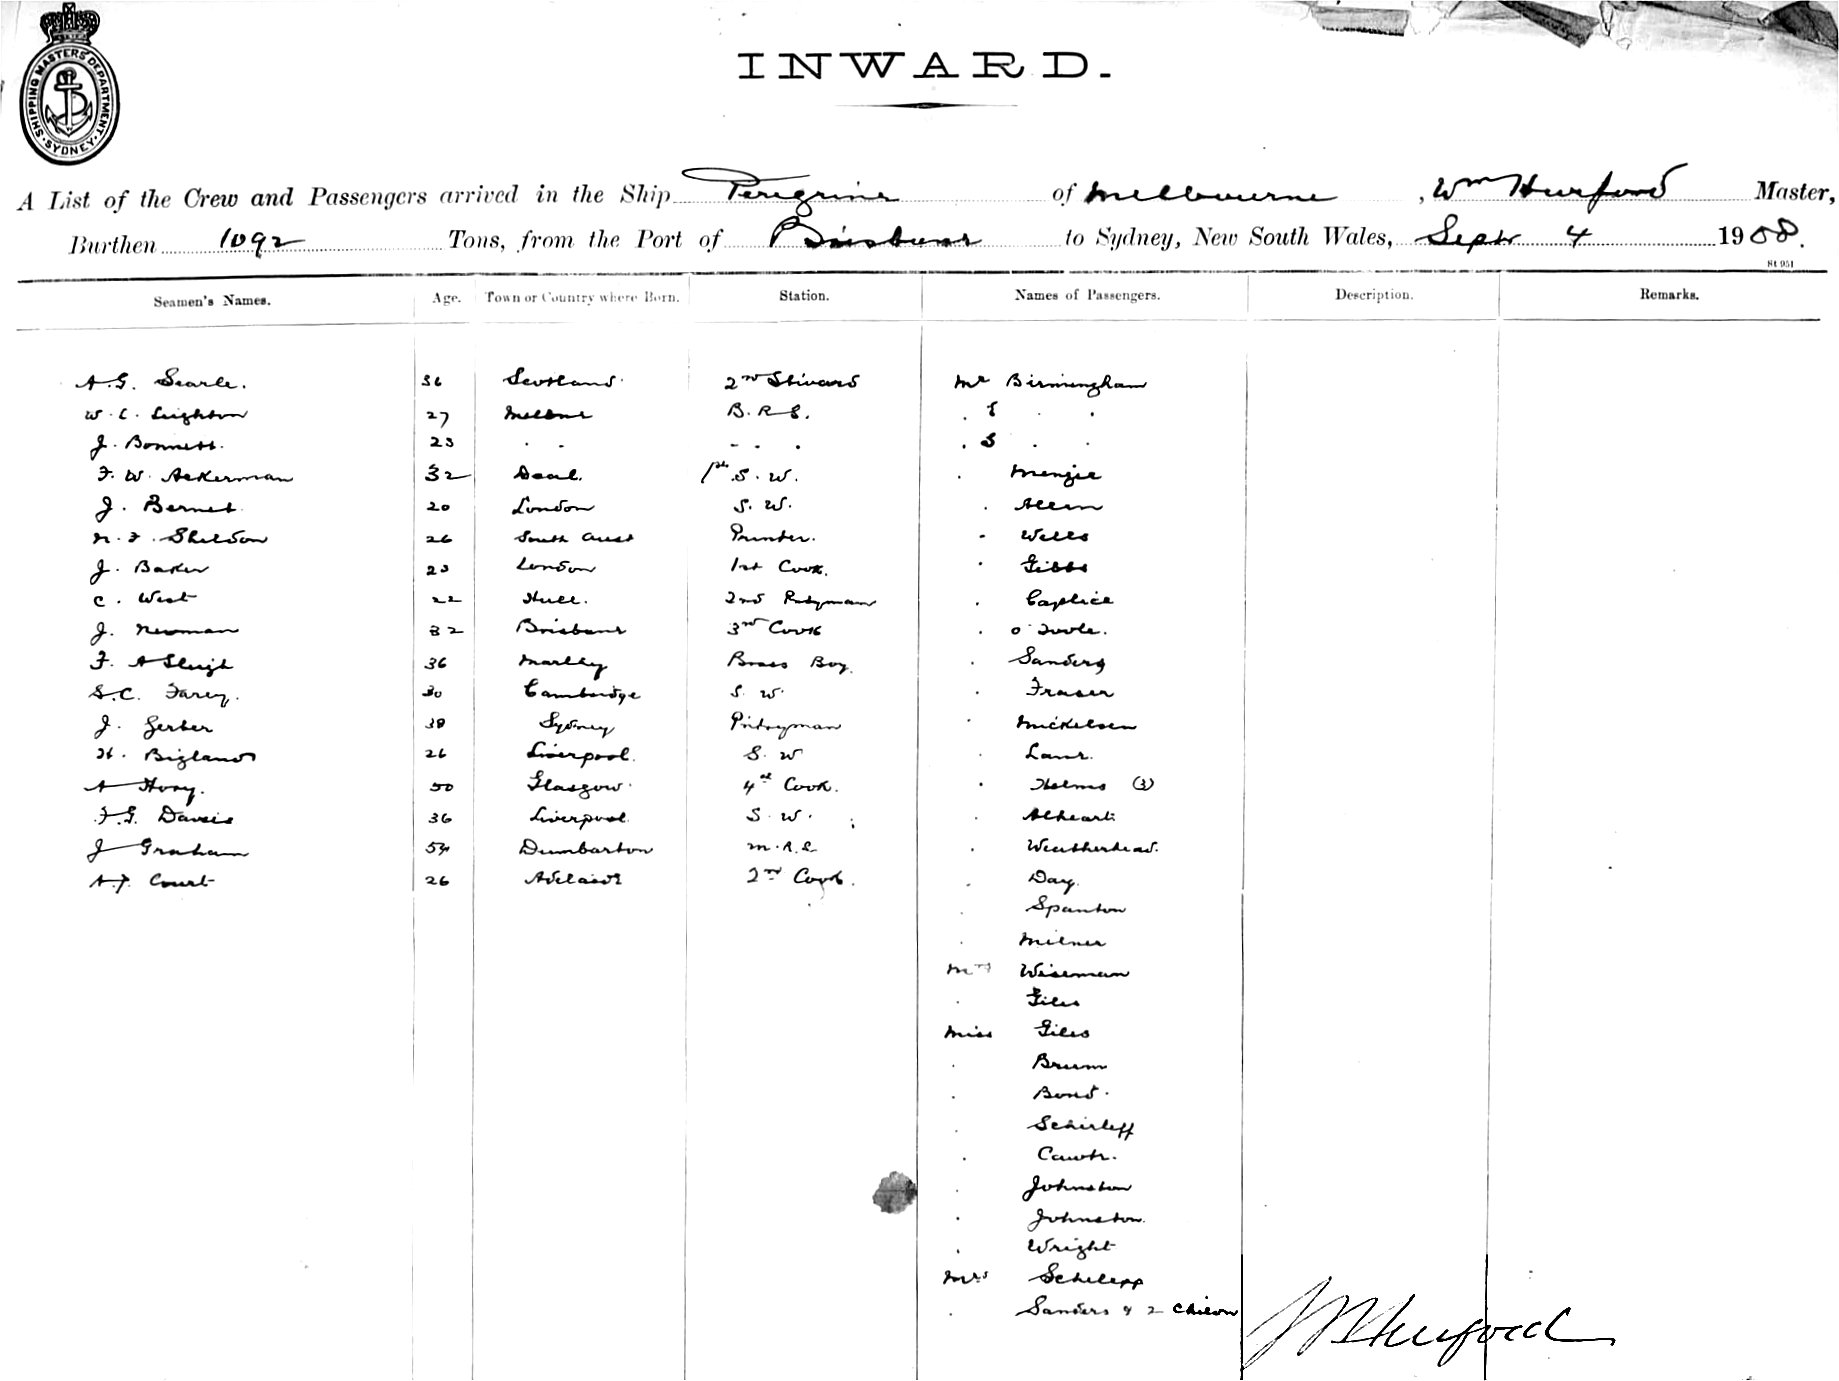 SHIPPING MASTERS DEPARTMENT
SYDNEY
INWARD.
A List of the Crew and Passengers arrived in the Ship Peregrine of Melbourne, Wm Hurford Master,
Burthen 1092 Tons, from the Port of Brisbane to Sydney, New South Wales, Septr 4 1908.
St 951
Seamen's Names. Age. Town or Country where Born. Station. Names of Passengers. Description. Remarks.
A. G. Searle. 36 Scotland. 2nd Steward Mr Birmingham
W. C. Leighton 27 Melbne B. R. S. . .
J. Bonnett. 23 . . - . . . S . .
F. W. Ackerman 32 Deal. 1st S. W. . Menzie
J. Bernet 20 London S. W. . Allen
N. F. Sheldon 26 South Aust Printer. - Wells
J. Baker 23 London 1st Cook. . Gibbs
C. West 22 Hull. 2nd Ptryman . Caplice
J. Newman 32 Brisbane 3rd Cook . O'Toole.
F. A Sleigh 36 Brass Boy. . Sanders
S. C. Farey. 30 Cambridge S. W. . Fraser
J. Gerber 38 Sydney Pntryman . Mickelsen
H. Bigland 26 Liverpool. S. W . Lane.
A Hoey. 50 Glasgow. 4th Cook. . Helms (3)
F. G. Davis 36 Liverpool S. W. . Alheart.
J Graham 54 Dumbarton M. R. S. . Weatherhead.
A. J. Court 26 Adelaide 2nd Cook. . Day.
. Spanton
. Milner
Mrs Wiseman
. Giles
Miss Giles
. Brum
. Bond.
. Schirleff
.
. Johnston
. Johnston.
. Wright
Mrs Schelepp
. Sanders & 2 Childn
Hurford